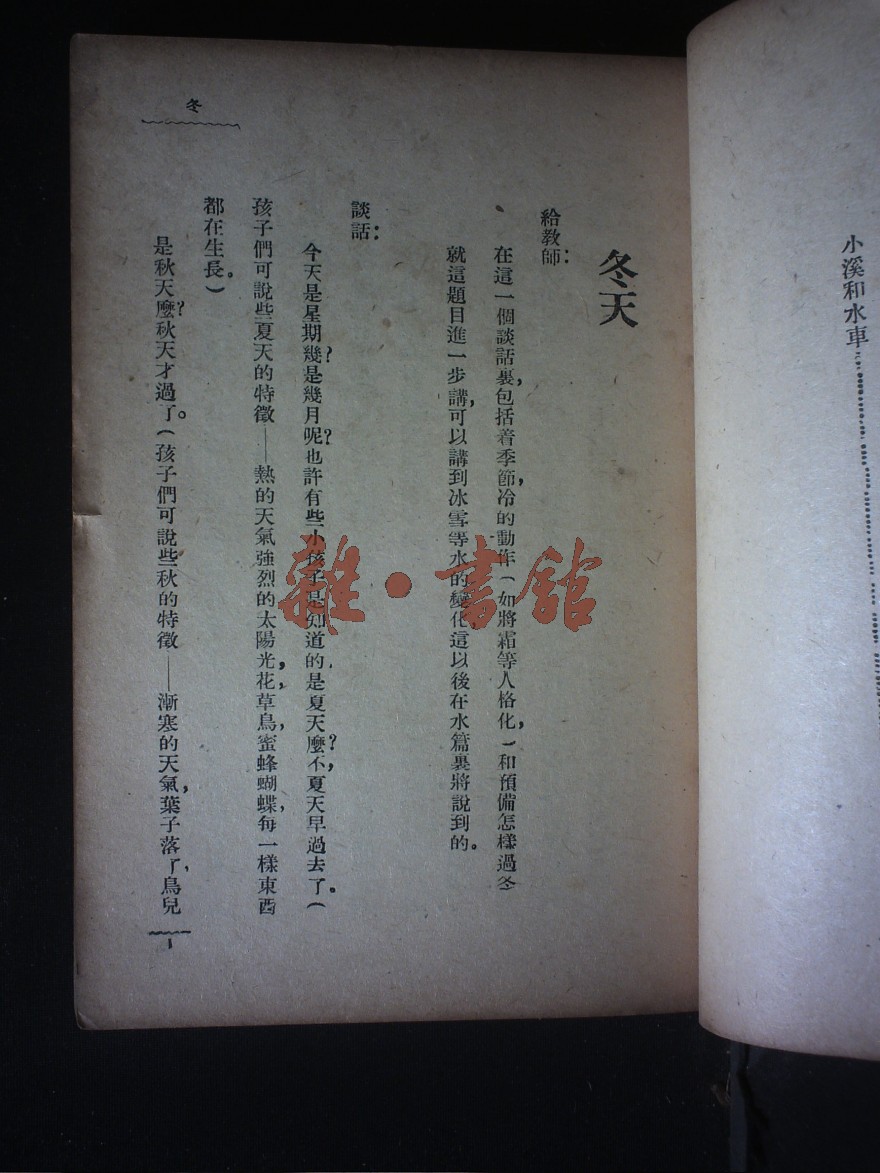 小溪和水車
冬天
給教師：
在這一個談話裏，包括着季節，冷的動作（如將霜等人格化，）和預備怎樣過冬
就這題目進一步講，可以講到冰雪等水的變化，這以後在水篇裏將說到的。
談話：
今天是星期幾？是幾月呢？也許有些小孩子是知道的，是夏天麼？不，夏天早過去了。（
孩子們可說些夏天的特徵——熱的天氣強烈的太陽光，花，草，鳥，蜜蜂，蝴蝶，每一樣東西
都在生長。）
是秋天麼？秋天才過了。（孩子們可說些秋的特徵——漸寒的天氣，葉子落了，鳥兒
冬
1
雜·書館